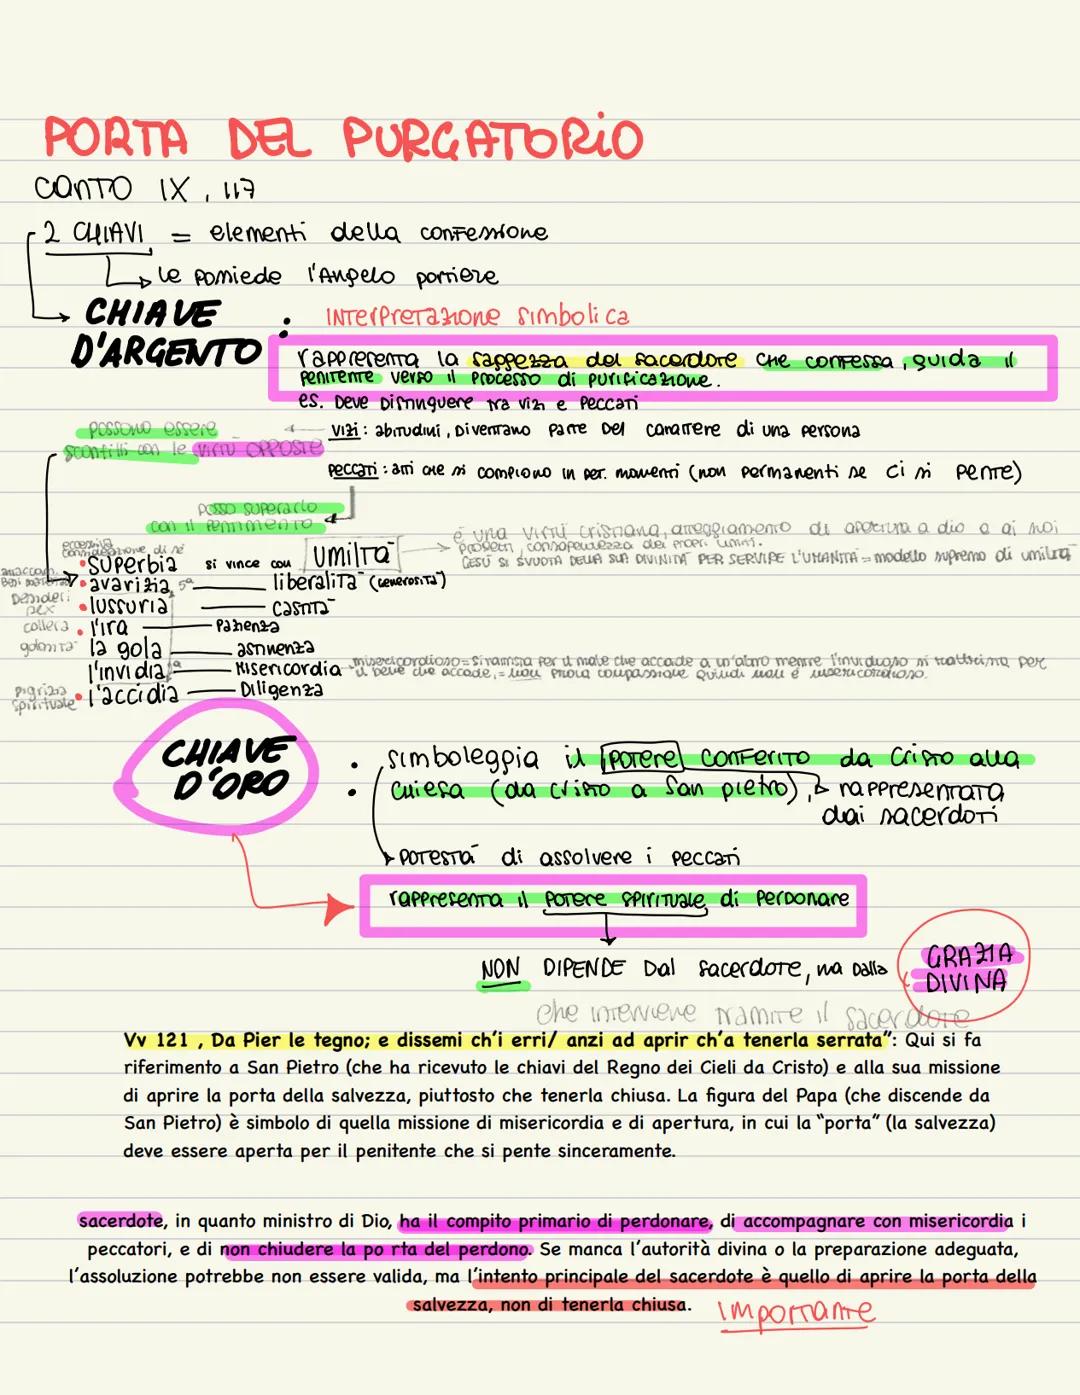 PORTA DEL PURGATORIO
CANTO IX, 117
2 CHIAVI = elementi della confessione
le possiede l'Angelo portiere
CHIAVE D'ARGENTO : INTERPRETAZIONE simbolica
rappresenta la saggezza del sacerdote che confessa, guida il
penitente verso il processo di purificazione.
es. Deve distinguere tra vizi e peccati
possono essere
sconfitti con le virtù opposte
Vizi: abitudini, Diventano parte del carattere di una persona
peccati: atti che si compiono in det. momenti (non permanenti se ci si pente)
posso superarlo
con il pentimento
è una virtù cristiana, atteggiamento di apertura a dio e ai suoi
progetti, consapevolezza dei propri limiti.
GESÙ SI SVUOTA DELLA SUA DIVINITÀ PER SERVIRE L'UMANITÀ = modello supremo di umiltà
eccessiva
considerazione di sé
superbia si vince con UMILTÀ
avarizia 5ª liberalità (generosità)
Desideri
sex
lussuria castità
collera l'ira Pazienza
golosità la gola astinenza
l'invidia Misericordia
misericordioso = si rattrista per il male che accade a un'altro mentre l'invidioso si rattrista per
il bene che accade, = non prova compassione quindi non è misericordioso.
pigrizia
spirituale
l'accidia Diligenza
CHIAVE D'ORO
simboleggia il potere conferito da Cristo alla
chiesa (da cristo a San pietro), rappresentata
dai sacerdoti
potestà di assolvere i peccati
rappresenta il potere spirituale di perdonare
NON DIPENDE Dal sacerdote, ma dalla GRAZIA DIVINA
che interviene tramite il sacerdote
Vv 121 , Da Pier le tegno; e dissemi ch'i erri/ anzi ad aprir ch'a tenerla serrata": Qui si fa
riferimento a San Pietro (che ha ricevuto le chiavi del Regno dei Cieli da Cristo) e alla sua missione
di aprire la porta della salvezza, piuttosto che tenerla chiusa. La figura del Papa (che discende da
San Pietro) è simbolo di quella missione di misericordia e di apertura, in cui la "porta" (la salvezza)
deve essere aperta per il penitente che si pente sinceramente.
sacerdote, in quanto ministro di Dio, ha il compito primario di perdonare, di accompagnare con misericordia i
peccatori, e di non chiudere la po rta del perdono. Se manca l'autorità divina o la preparazione adeguata,
l'assoluzione potrebbe non essere valida, ma l'intento principale del sacerdote è quello di aprire la porta della
salvezza, non di tenerla chiusa. importante